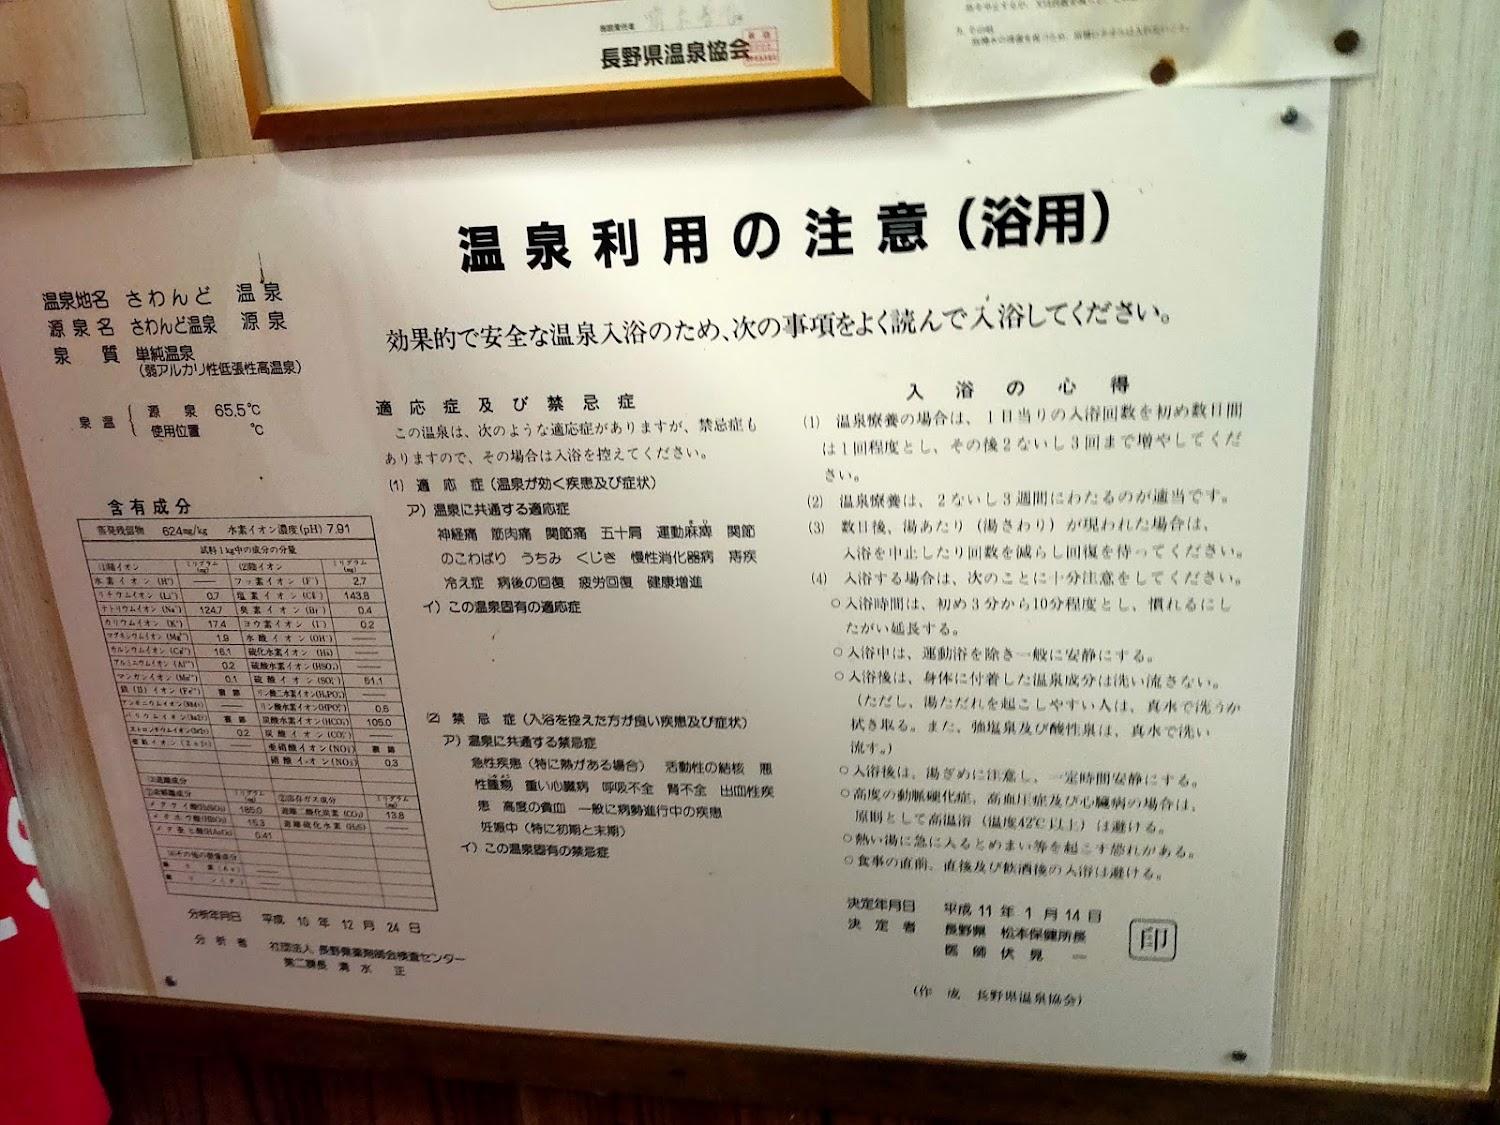 長野県温泉協会
温泉利用の注意（浴用）
効果的で安全な温泉入浴のため、次の事項をよく読んで入浴してください。
温泉地名 さわんど 温泉
源泉名 さわんど温泉 源泉
泉質 単純温泉
（弱アルカリ性低張性高温泉）
泉温 源泉 65.5℃
使用位置 ℃
含有成分
蒸発残留物 624mg/kg 水素イオン濃度(pH) 7.91
試料1kg中の成分の分量
(1)陽イオン ミリグラム(mg) (2)陰イオン ミリグラム(mg)
水素イオン (H⁺) — フッ素イオン (F⁻) 2.7
リチウムイオン (Li⁺) 0.7 塩素イオン (Cl⁻) 143.8
ナトリウムイオン (Na⁺) 124.7 臭素イオン (Br⁻) 0.4
カリウムイオン (K⁺) 17.4 ヨウ素イオン (I⁻) 0.2
マグネシウムイオン (Mg²⁺) 1.9 水酸イオン (OH⁻) —
カルシウムイオン (Ca²⁺) 16.1 硫化水素イオン (HS⁻) —
アルミニウムイオン (Al³⁺) 0.2 硫酸水素イオン (HSO₄⁻) —
マンガンイオン (Mn²⁺) 0.1 硫酸イオン (SO₄²⁻) 51.1
鉄(II)イオン (Fe²⁺) 痕跡 リン酸二水素イオン(H₂PO₄⁻) —
リン酸水素イオン(HPO₄²⁻) 0.6
炭酸水素イオン(HCO₃⁻) 105.0
ストロンチウムイオン 0.2 炭酸イオン (CO₃²⁻) —
亜硝酸イオン (NO₂⁻) 痕跡
硝酸イオン (NO₃⁻) 0.3
(3)遊離成分
メタケイ酸(H₂SiO₃) 185.0 遊離二酸化炭素 (CO₂) 13.8
メタホウ酸(HBO₂) 15.3 遊離硫化水素 (H₂S) —
メタ亜ヒ酸(HAsO₂) 0.41
分析年月日 平成10年12月24日
分析者 社団法人 長野県薬剤師会検査センター
第二課長 清水 正
適応症及び禁忌症
この温泉は、次のような適応症がありますが、禁忌症も
ありますので、その場合は入浴を控えてください。
(1) 適応症（温泉が効く疾患及び症状）
ア）温泉に共通する適応症
神経痛 筋肉痛 関節痛 五十肩 運動麻痺 関節
のこわばり うちみ くじき 慢性消化器病 痔疾
冷え症 病後の回復 疲労回復 健康増進
イ）この温泉固有の適応症
(2) 禁忌症（入浴を控えた方が良い疾患及び症状）
ア）温泉に共通する禁忌症
急性疾患（特に熱がある場合） 活動性の結核 悪
性腫瘍 重い心臓病 呼吸不全 腎不全 出血性疾
患 高度の貧血 一般に病勢進行中の疾患
妊娠中（特に初期と末期）
イ）この温泉固有の禁忌症
入浴の心得
(1) 温泉療養の場合は、1日当りの入浴回数を初め数日間
は1回程度とし、その後2ないし3回まで増やしてくだ
さい。
(2) 温泉療養は、2ないし3週間にわたるのが適当です。
(3) 数日後、湯あたり（湯さわり）が現われた場合は、
入浴を中止したり回数を減らし回復を待ってください。
(4) 入浴する場合は、次のことに十分注意をしてください。
○入浴時間は、初め3分から10分程度とし、慣れるにし
たがい延長する。
○入浴中は、運動浴を除き一般に安静にする。
○入浴後は、身体に付着した温泉成分は洗い流さない。
（ただし、湯ただれを起こしやすい人は、真水で洗うか
拭き取る。また、強塩泉及び酸性泉は、真水で洗い
流す。）
○入浴後は、湯ざめに注意し、一定時間安静にする。
○高度の動脈硬化症、高血圧症及び心臓病の場合は、
原則として高温浴（温度42℃以上）は避ける。
○熱い湯に急に入るとめまい等を起こす恐れがある。
○食事の直前、直後及び飲酒後の入浴は避ける。
決定年月日 平成11年1月14日
決定者 長野県 松本保健所長
医師 伏見 一
印
（作成 長野県温泉協会）